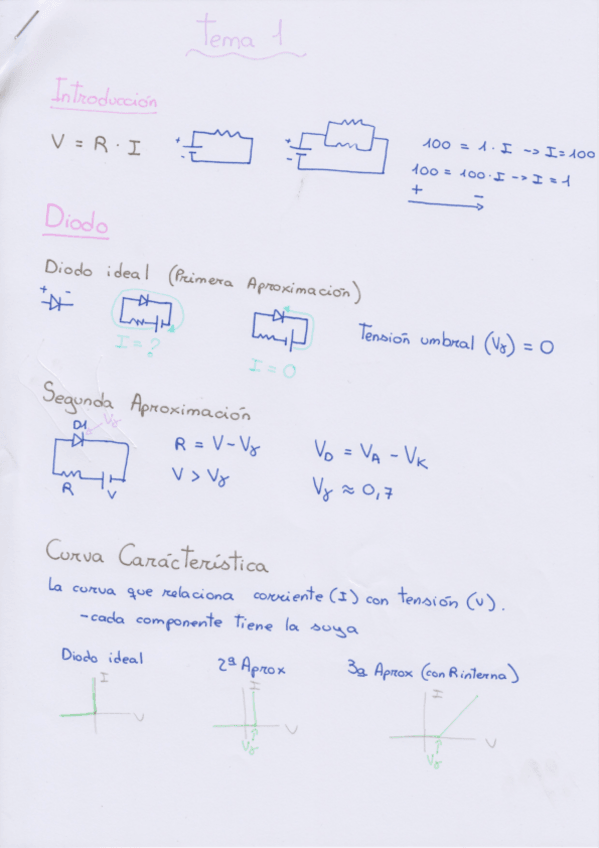 tema 1
Introducción
V = R · I
+
-
+
-
100 = 1 · I -> I = 100
100 = 100 · I -> I = 1
+ -
Diodo
Diodo ideal (Primera Aproximación)
+ -
I = ?
I = 0
Tensión umbral (Vγ) = 0
Segunda Aproximación
D1 Vγ
R V
R = V - Vγ
V > Vγ
VD = VA - VK
Vγ ≈ 0,7
Curva Carácterística
La curva que relaciona corriente (I) con tensión (V).
- cada componente tiene la suya
Diodo ideal
I
V
2ª Aprox
I
V
Vγ
3ª Aprox (con R interna)
I
V
Vγ